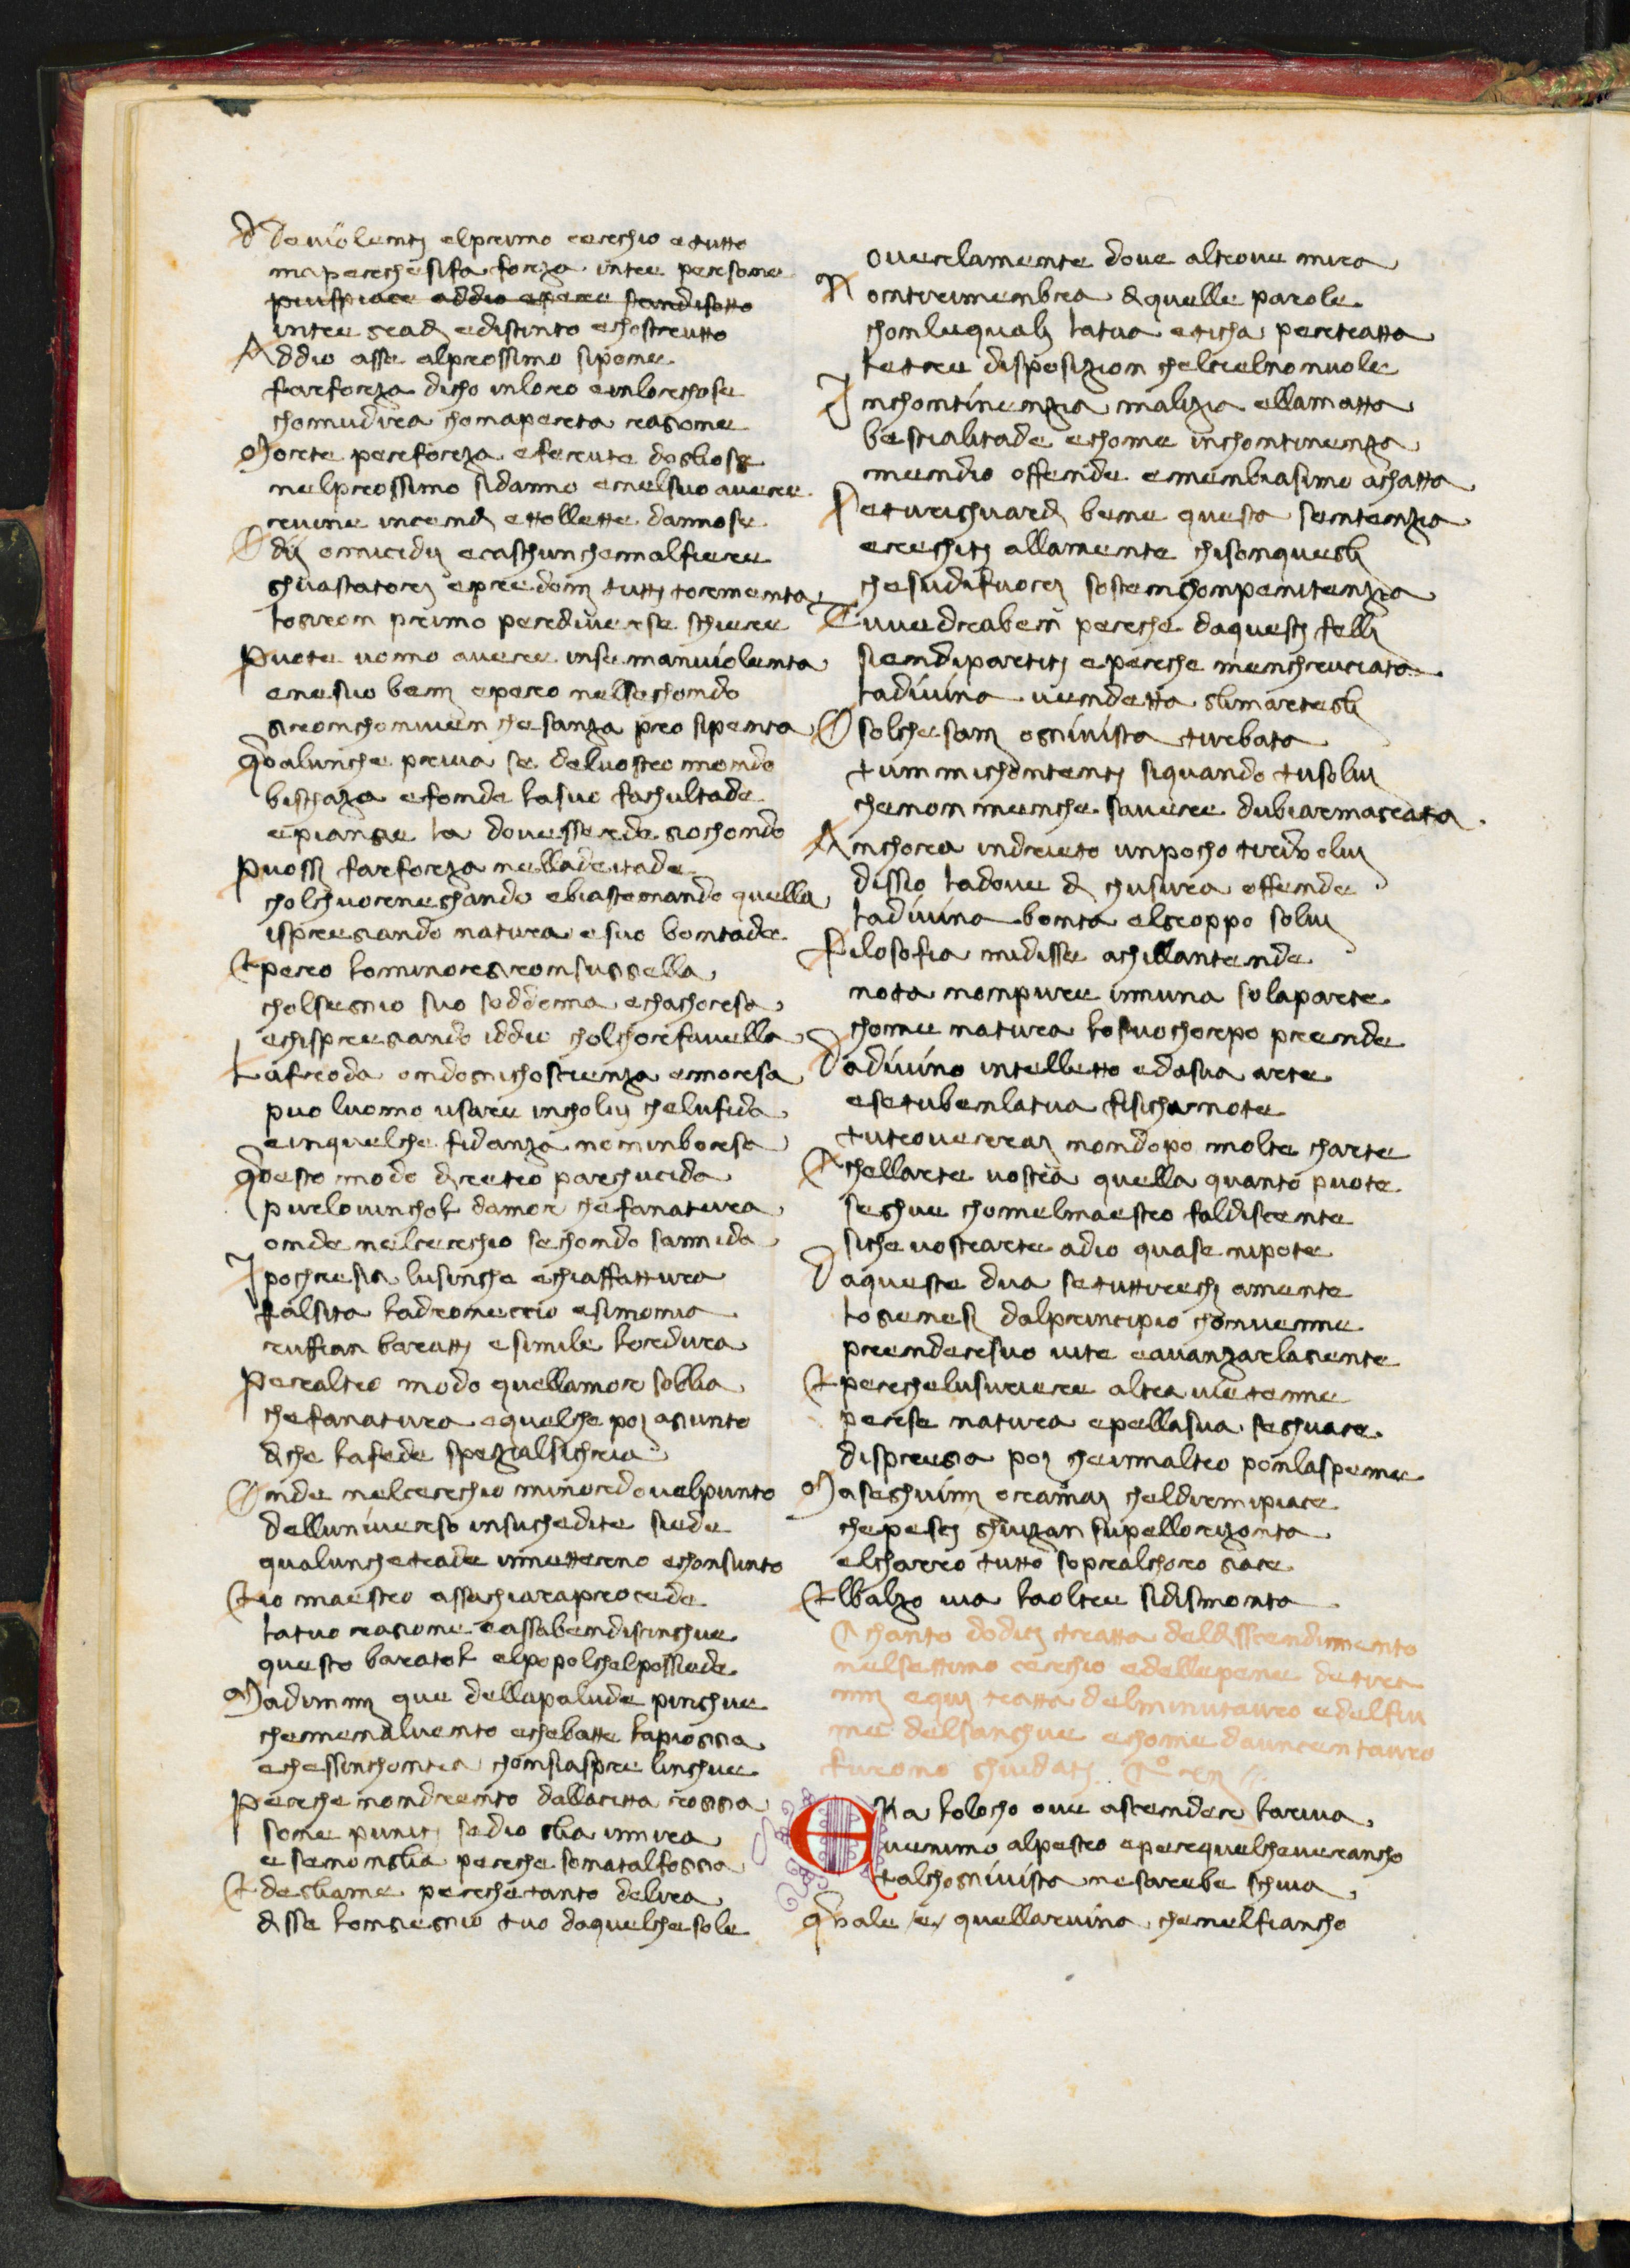 D Deuiolentj elprimo cerchio etutto
maperchesifa forza intre persone
piuspiace addio epero standisotto
intre giradj edistinto echostrutto
Addio asse alprossimo sipone
farforza dicho inloro einlorchose
chomudirai chonaperta ragione
Morte perforza eferute dogliose
nelprossimo sidanno enelsuo auere
ruine incendj ettollette dannose
Odij omicidij eciaschunchemalfiere
ghuastatorj epredonj tuttj tormenta
logiron primo perdiuerse schiere
Puote uomo auere inse manuiolenta
enesuo benj epero nelsechondo
gironchonuien chesanza pro sipenta
Qualunche priua se deluostro mondo
bischaza efonde lasua fachultade
epiange la douesserde giochondo
Puossi farforza nelladeitade
cholchuorneghando ebiastemando quella
ispregiando natura esuo bontade
Epero lominorgironsuggella
cholsegnio suo soddoma echachorsa
echispregiando iddio cholchorfauella
Lafroda ondognichoscienza emorsa
puo luomo usare incholuj chelufida
einquelche fidanza noninborsa
Questo modo diretro parchucida
purlouinchol damor chefanatura
onde nelcerchio sechondo sannida
Ipochresia lusinghe echiaffattura
falsita ladroneccio esimonia
ruffian barattj esimile lordura
Peraltro modo quellamor sobblia
chefanatura equelche poj agiunto
diche lafede spezialsichria
Onde nelcerchio minordouelpunto
delluniuerso insuchedite siede
qualunchetrade inetterno echonsunto
Eio maestro assachiaraprocede
latuo ragione eassabendistinghue
questo baratol elpopolchelpossiede
Madimmj que dellapalude pinghue
chemenaluento echebatte lapioggia
echessinchontra chonsiaspre linghue
Perche nondrento dallacitta roggia
sono punitj sedio glia inira
esenonglia perche sonatalfoggia
Edegliame perche tanto delira
disse longiegnio tuo daquelchesole
ouerlamente doue altroue mira
Nontirimenbra diquelle parole
chonlequalj latua eticha pertratta
letre disposizion chelcielnonuole
Inchontinenzia malizia ellamatta
bestialitade echome inchontinenza
mendio offende emenbiasimo achatta
Seturighuardj bene questa sentenzia
erechitj allamente chisonquestj
chesudifuorj sostenghonpenitenzia
Tuuedraben perche daquestj fellj
siendipartitj eperche menchruciata
ladiuina uendetta glimartellj
Osolchesanj ogniuista turbata
tummichontentj siquando tusoluj
chenon menche sauere dubiarmagrata
Anchora indrieto unpocho tiriuoluj
dissio ladoue dj chusura offende
ladiuina bonta elgroppo soluj
Filosofia midisse achillantende
nota nonpure inuna solaparte
chome natura losuochorpo prende
Dadiuino intelletto edasua arte
esetubenlatua fisicha note
tutrouerraj nondopo molte charte
Chellarte uostra quella quanto puote
seghue chomelmaestro faldiscente
siche uostrarte adio quase nipote
Daqueste dua setuttirechj amente
logienesj dalprincipio chonuenne
prendersuo uite eauanzarlagente
Epercheluxuriere altra uietenne
perse natura epellasua seghuace
dispregia poj cheinaltro ponlaspeme
Maseghuimj oramaj cheldirmipiace
chepescj ghuizan supellorizonta
elcharro tutto sopralchoro giace
Elbalzo uia laoltre sidismonta
Chanto dodicj tratta deldiscendimento
nelsettimo cerchio edellepene detira
nnj equj tratta delminutauro edelfiu
me delsanghue echome dauncentauro
furono ghuidatj. Co xij
ERa lolocho oue ascender lariua
uenimo alpestro eperquelcheueranche
talchogniuista nesarebe schiua
Quale e quellaruina chenelfiancho